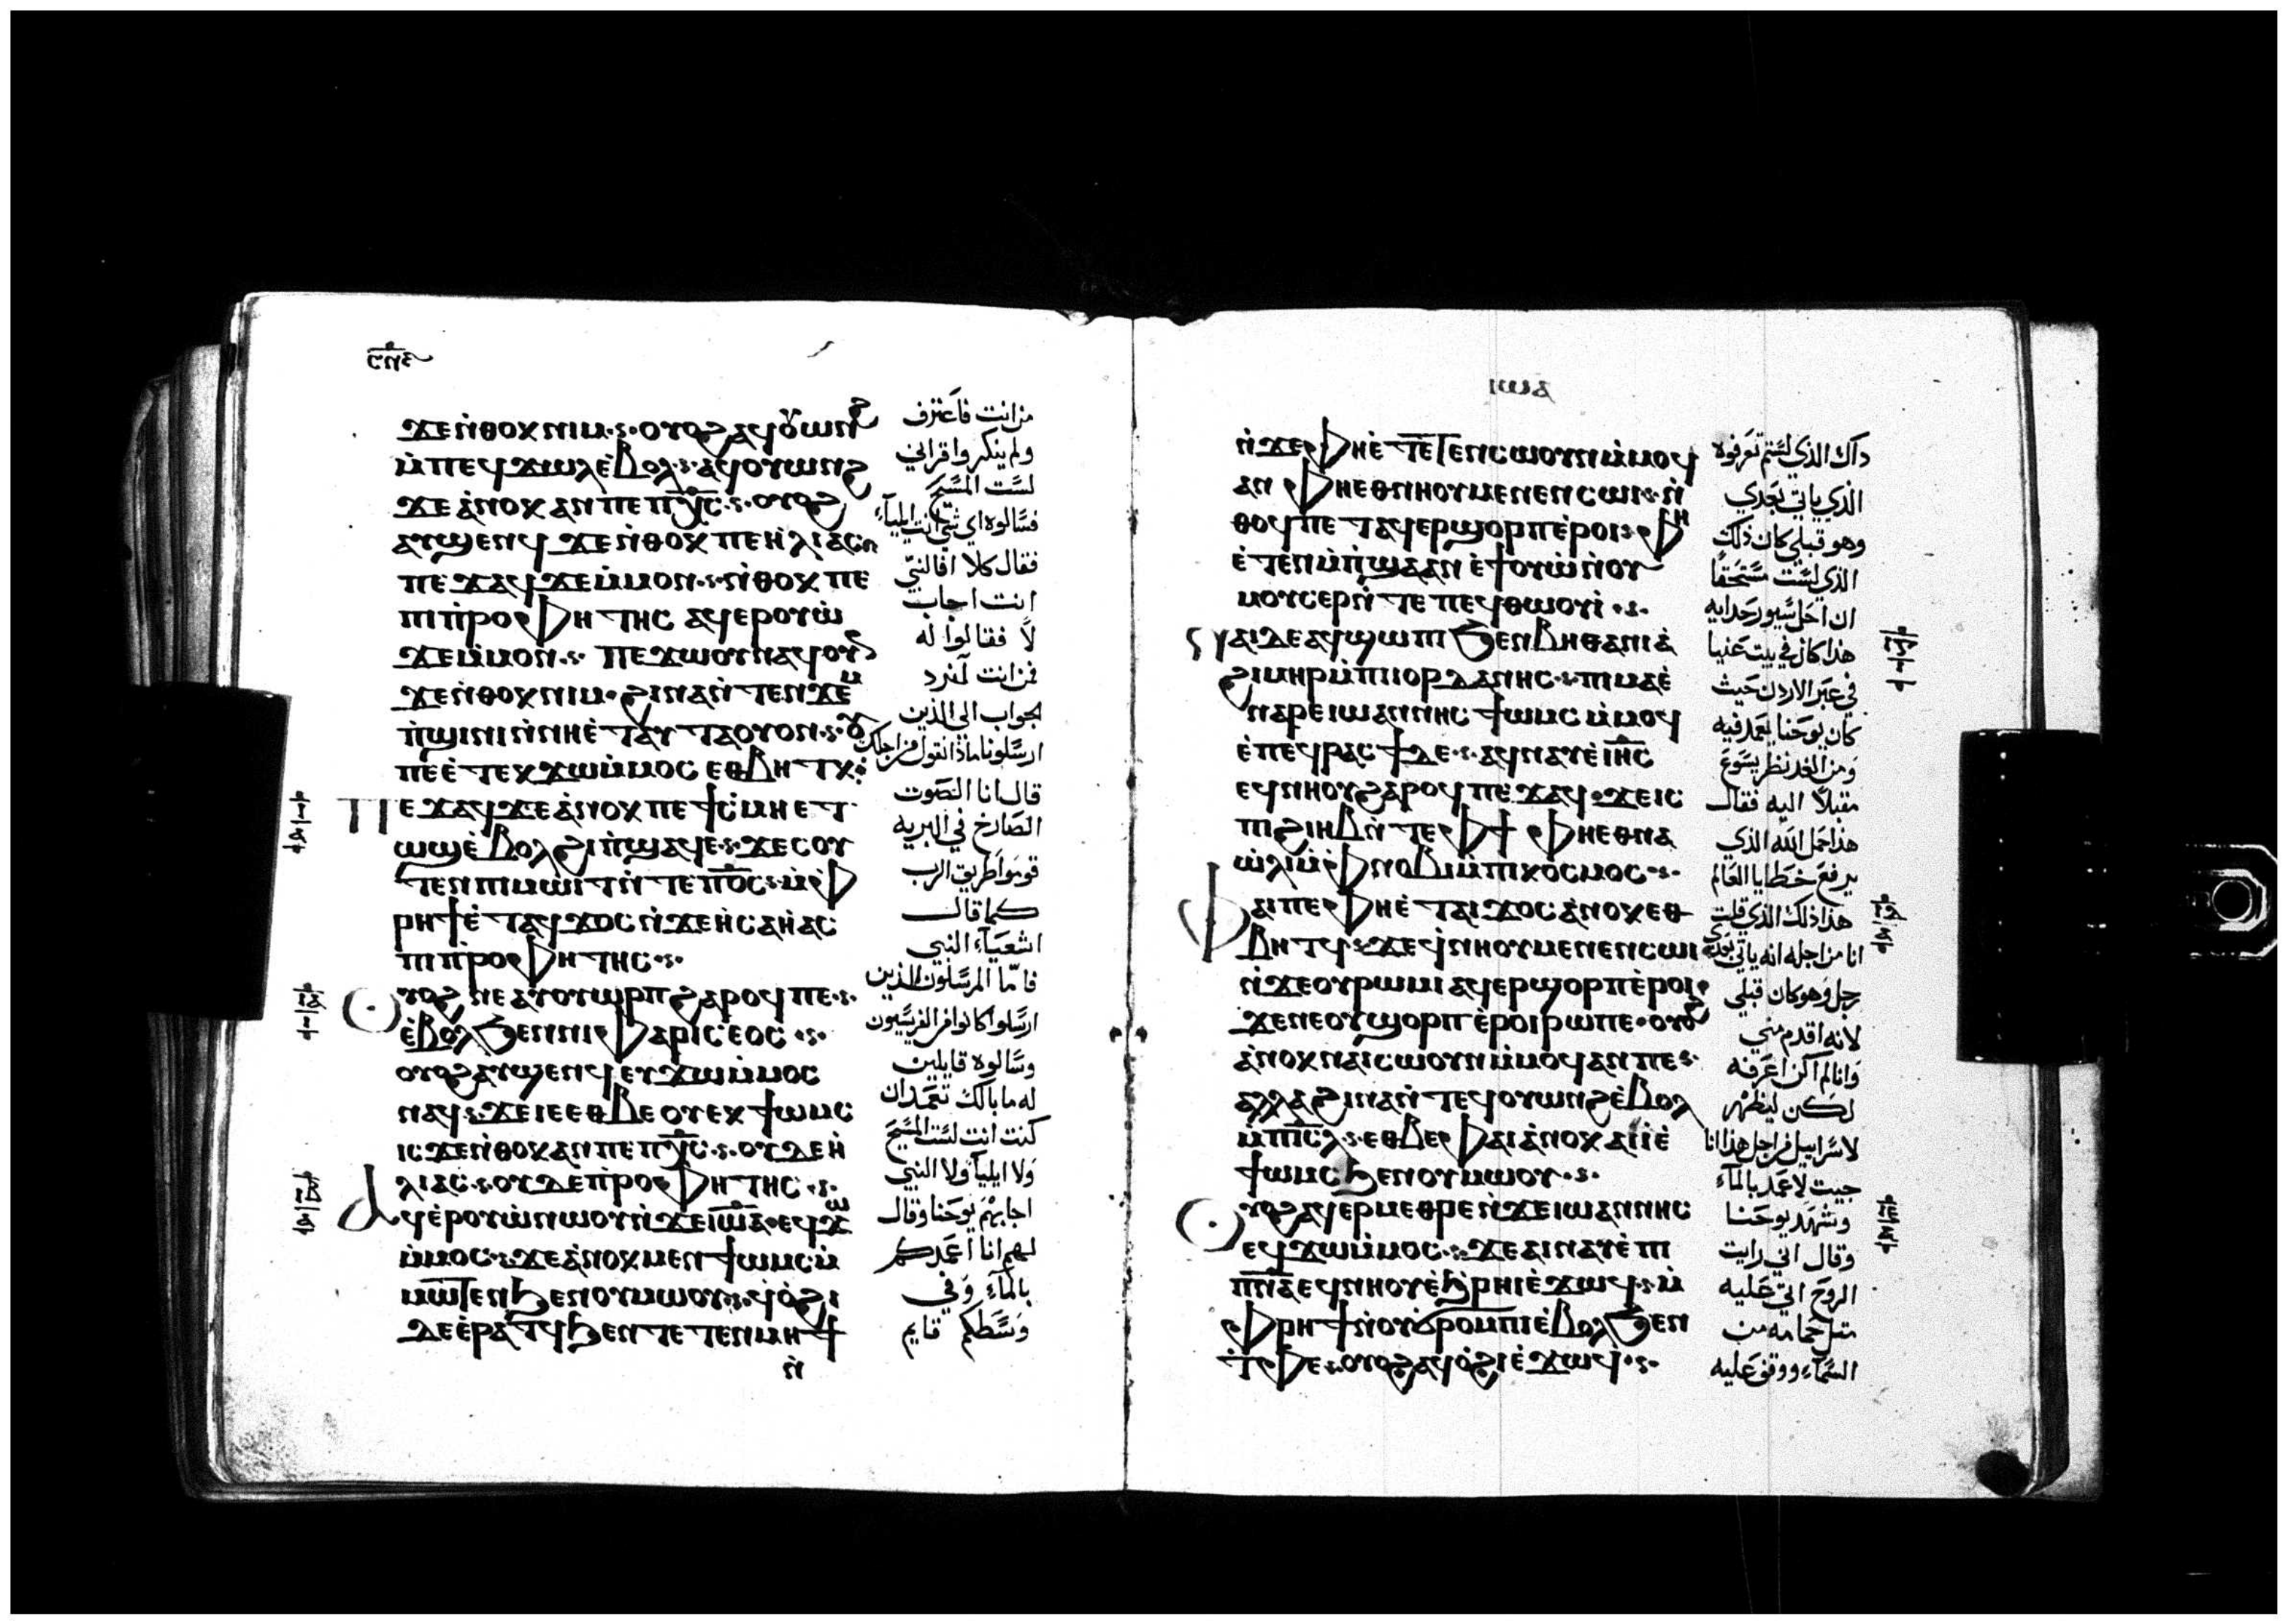 ϫⲉ ⲛ̀ⲑⲟⲕ ⲛⲓⲙ ⲟⲩⲟϩ ⲁϥⲟⲩⲱⲛϩ
ⲙ̀ⲡⲉϥϫⲱⲗ ⲉ̀ⲃⲟⲗ ⲁϥⲟⲩⲱⲛϩ
ϫⲉ ⲁ̀ⲛⲟⲕ ⲁⲛ ⲡⲉ ⲡⲭ̅ⲥ ⲟⲩⲟϩ
ⲁⲩϣⲉⲛϥ ϫⲉ ⲛ̀ⲑⲟⲕ ⲡⲉ ⲏ̀ⲗⲓⲁⲥ
ⲡⲉϫⲁϥ ϫⲉ ⲙ̀ⲙⲟⲛ ⲛ̀ⲑⲟⲕ ⲡⲉ
ⲡⲓⲡ̀ⲣⲟⲫⲏⲧⲏⲥ ⲁϥⲉⲣⲟⲩⲱ̀
ϫⲉ ⲙ̀ⲙⲟⲛ ⲡⲉϫⲱⲟⲩ ⲛⲁϥ ⲟⲩⲛ
ϫⲉ ⲛ̀ⲑⲟⲕ ⲛⲓⲙ ϩⲓⲛⲁ ⲛ̀ⲧⲉⲛϫⲉⲙ
ⲡ̀ϣⲓⲛⲓ ⲛ̀ⲛⲏⲉ̀ⲧⲁⲩⲧⲁⲟⲩⲟⲛ ⲟⲩ
ⲡⲉ ⲉ̀ⲧⲉⲕϫⲱ ⲙ̀ⲙⲟⲥ ⲉⲑⲃⲏⲧⲕ
Ⲡⲉϫⲁϥ ϫⲉ ⲁ̀ⲛⲟⲕ ⲡⲉ ϯⲥ̀ⲙⲏ ⲉⲧ
ⲱϣ ⲉ̀ⲃⲟⲗ ϩⲓ ⲡ̀ϣⲁϥⲉ ϫⲉ ⲥⲟⲩ
ⲧⲉⲛ ⲡⲓⲙⲱⲓⲧ ⲛ̀ⲧⲉ ⲡⲟ̅ⲥ ⲙ̀ⲫ
ⲣⲏϯ ⲉ̀ⲧⲁϥϫⲟⲥ ⲛ̀ϫⲉ ⲏ̀ⲥⲁⲏ̀ⲁⲥ
ⲡⲓⲡ̀ⲣⲟⲫⲏⲧⲏⲥ
Ⲟⲩⲟϩ ⲛⲉ ⲁⲩⲟⲩⲱⲣⲡ ϩⲁⲣⲟϥ ⲡⲉ
ⲉ̀ⲃⲟⲗϧⲉⲛ ⲛⲓⲫⲁⲣⲓⲥⲉⲟⲥ
ⲟⲩⲟϩ ⲁⲩϣⲉⲛϥ ⲉⲩϫⲱ ⲙ̀ⲙⲟⲥ
ⲛⲁϥ ϫⲉ ⲓⲉ ⲉⲑⲃⲉ ⲟⲩ ⲉⲕϯⲱⲙⲥ
ⲓⲥϫⲉ ⲛ̀ⲑⲟⲕ ⲁⲛ ⲡⲉ ⲡⲭ̅ⲥ ⲟⲩⲇⲉ ⲏ̀
ⲗⲓⲁⲥ ⲟⲩⲇⲉ ⲡ̀ⲣⲟⲫⲏⲧⲏⲥ
Ⲁϥⲉ̀ⲣⲟⲩⲱ̀ ⲛⲱⲟⲩ ⲛ̀ϫⲉ ⲓⲱ̅ⲁ ⲉϥϫⲱ
ⲙ̀ⲙⲟⲥ ϫⲉ ⲁ̀ⲛⲟⲕ ⲙⲉⲛ ϯⲱⲙⲥ ⲙ̀
ⲙⲱⲧⲉⲛ ϧⲉⲛ ⲟⲩⲙⲱⲟⲩ ϥⲟ̀ϩⲓ
ⲇⲉ ⲉ̀ⲣⲁⲧϥ ϧⲉⲛ ⲧⲉⲧⲉⲛⲙⲏϯ
ⲛ̀
من انت فاعترف
ولم ينكر واقر اني
لست المسيح
فسالوه اي شي انت ايليآء
فقال كلا افالنبي
انت اجاب
لا فقالوا له
فمن انت لنرد
الجواب الي الذين
ارسلونا ماذا تقول من اجلك
قال انا الصوت
الصارخ في البريه
قوموا طريق الرب
كما قال
اشعيآء النبي
فاما المرسلون الذين
ارسلوا كانوا من الفريسيون
وسالوه قايلين
له ما بالك تعمد ان
كنت انت لست المسيح
ولا ايليآ ولا النبي
اجابهم يوحنا وقال
لهم انا اعمدكم
بالمآء وفي
وسطكم قايم
ⲛ̀ϫⲉ ⲫⲏⲉ̀ⲧⲉⲧⲉⲛⲥⲱⲟⲩⲛ ⲙ̀ⲙⲟϥ
ⲁⲛ ⲫⲏⲉⲑⲛⲏⲟⲩ ⲙⲉⲛⲉⲛⲥⲱⲓ ⲛ̀
ⲑⲟϥ ⲡⲉ ⲧⲁϥⲉⲣϣⲟⲣⲡ ⲉ̀ⲣⲟⲓ ⲫⲏ
ⲉ̀ⲧⲉⲛ ⲙ̀ⲡ̀ϣⲁ ⲁⲛ ⲉ̀ϯⲟⲩⲱ̀ ⲛ̀ⲟⲩ
ⲙⲟⲩⲥⲉⲣ ⲛ̀ⲧⲉ ⲡⲉϥⲑⲱⲟⲩⲓ̀
Ⲛⲁⲓ ⲇⲉ ⲁϥϣⲱⲡⲓ ϧⲉⲛ ⲃⲏⲑⲁⲛⲓⲁ̀
ϩⲓⲙⲏⲣ ⲙ̀ⲡⲓⲓⲟⲣⲇⲁⲛⲏⲥ ⲡⲓⲙⲁ ⲉ̀
ⲛⲁⲣⲉ ⲓⲱⲁⲛⲛⲏⲥ ϯⲱⲙⲥ ⲙ̀ⲙⲟϥ
ⲉ̀ⲡⲉϥⲣⲁⲥϯ ⲇⲉ ⲁϥⲛⲁⲩ ⲉ̀ⲓⲏ̅ⲥ
ⲉϥⲛⲏⲟⲩ ϩⲁⲣⲟϥ ⲡⲉϫⲁϥ ϫⲉ ⲓⲥ
ⲡⲓϩⲓⲏⲃ ⲛ̀ⲧⲉ ⲫϯ ⲫⲏⲉⲑⲛⲁ
ⲱ̀ⲗⲓ ⲙ̀ⲫⲛⲟⲃⲓ ⲙ̀ⲡⲓⲕⲟⲥⲙⲟⲥ
Ⲫⲁⲓ ⲡⲉ ⲫⲏⲉ̀ⲧⲁⲓϫⲟⲥ ⲁ̀ⲛⲟⲕ ⲉⲑ
ⲃⲏⲧϥ ϫⲉ ϥ̀ⲛⲏⲟⲩ ⲙⲉⲛⲉⲛⲥⲱⲓ
ⲛ̀ϫⲉ ⲟⲩⲣⲱⲙⲓ ⲁϥⲉⲣϣⲟⲣⲡ ⲉ̀ⲣⲟⲓ
ϫⲉ ⲛⲉ ⲟⲩϣⲟⲣⲡ ⲉ̀ⲣⲟⲓ ⲣⲱ ⲡⲉ ⲟⲩⲟϩ
ⲁ̀ⲛⲟⲕ ⲛⲁⲓⲥⲱⲟⲩⲛ ⲙ̀ⲙⲟϥ ⲁⲛ ⲡⲉ
ⲁⲗⲗⲁ ϩⲓⲛⲁ ⲛ̀ⲧⲉϥⲟⲩⲱⲛϩ ⲉ̀ⲃⲟⲗ
ⲙ̀ⲡⲓⲥ̅ⲗ ⲉⲑⲃⲉ ⲫⲁⲓ ⲁ̀ⲛⲟⲕ ⲁⲓⲓ̀ ⲉ̀
ϯⲱⲙⲥ ϧⲉⲛ ⲟⲩⲙⲱⲟⲩ
Ⲟⲩⲟϩ ⲁϥⲉⲣⲙⲉⲑⲣⲉ ⲛ̀ϫⲉ ⲓⲱⲁⲛⲛⲏⲥ
ⲉϥϫⲱ ⲙ̀ⲙⲟⲥ ϫⲉ ⲁⲓⲛⲁⲩ ⲉ̀ⲡⲓ
ⲡⲛ̅ⲁ ⲉϥⲛⲏⲟⲩ ⲉ̀ϧ̀ⲣⲏⲓ ⲉ̀ϫⲱϥ ⲙ̀
ⲫⲣⲏϯ ⲛ̀ⲟⲩϭⲣⲟⲙⲡⲓ ⲉ̀ⲃⲟⲗϧⲉⲛ
ⲧ̀ⲫⲉ ⲟⲩⲟϩ ⲁϥⲟ̀ϩⲓ ⲉ̀ϫⲱϥ
داك الذي لستم تعرفوه
الذي ياتي بعدي
وهو قبلي كان ذلك
الذي لست مستحقا
ان احل سيور حدايه
هذا كان في بيت عنيا
في عبر الاردن حيث
كان يوحنا يعمد فيه
ومن الغد نظر يسوع
مقبلا اليه فقال
هذا حمل الله الذي
يرفع خطايا العالم
هذا ذلك الذي قلت
انا من اجله انه ياتي بعدي
رجل وهو كان قبلي
لانه اقدم مني
وانا لم اكن اعرفه
لكن ليظهر
لاسراييل من اجل هذا انا
جيت لاعمد بالمآء
وشهد يوحنا
وقال اني رايت
الروح اتي عليه
مثل حمامه من
السمآء ووقف عليه